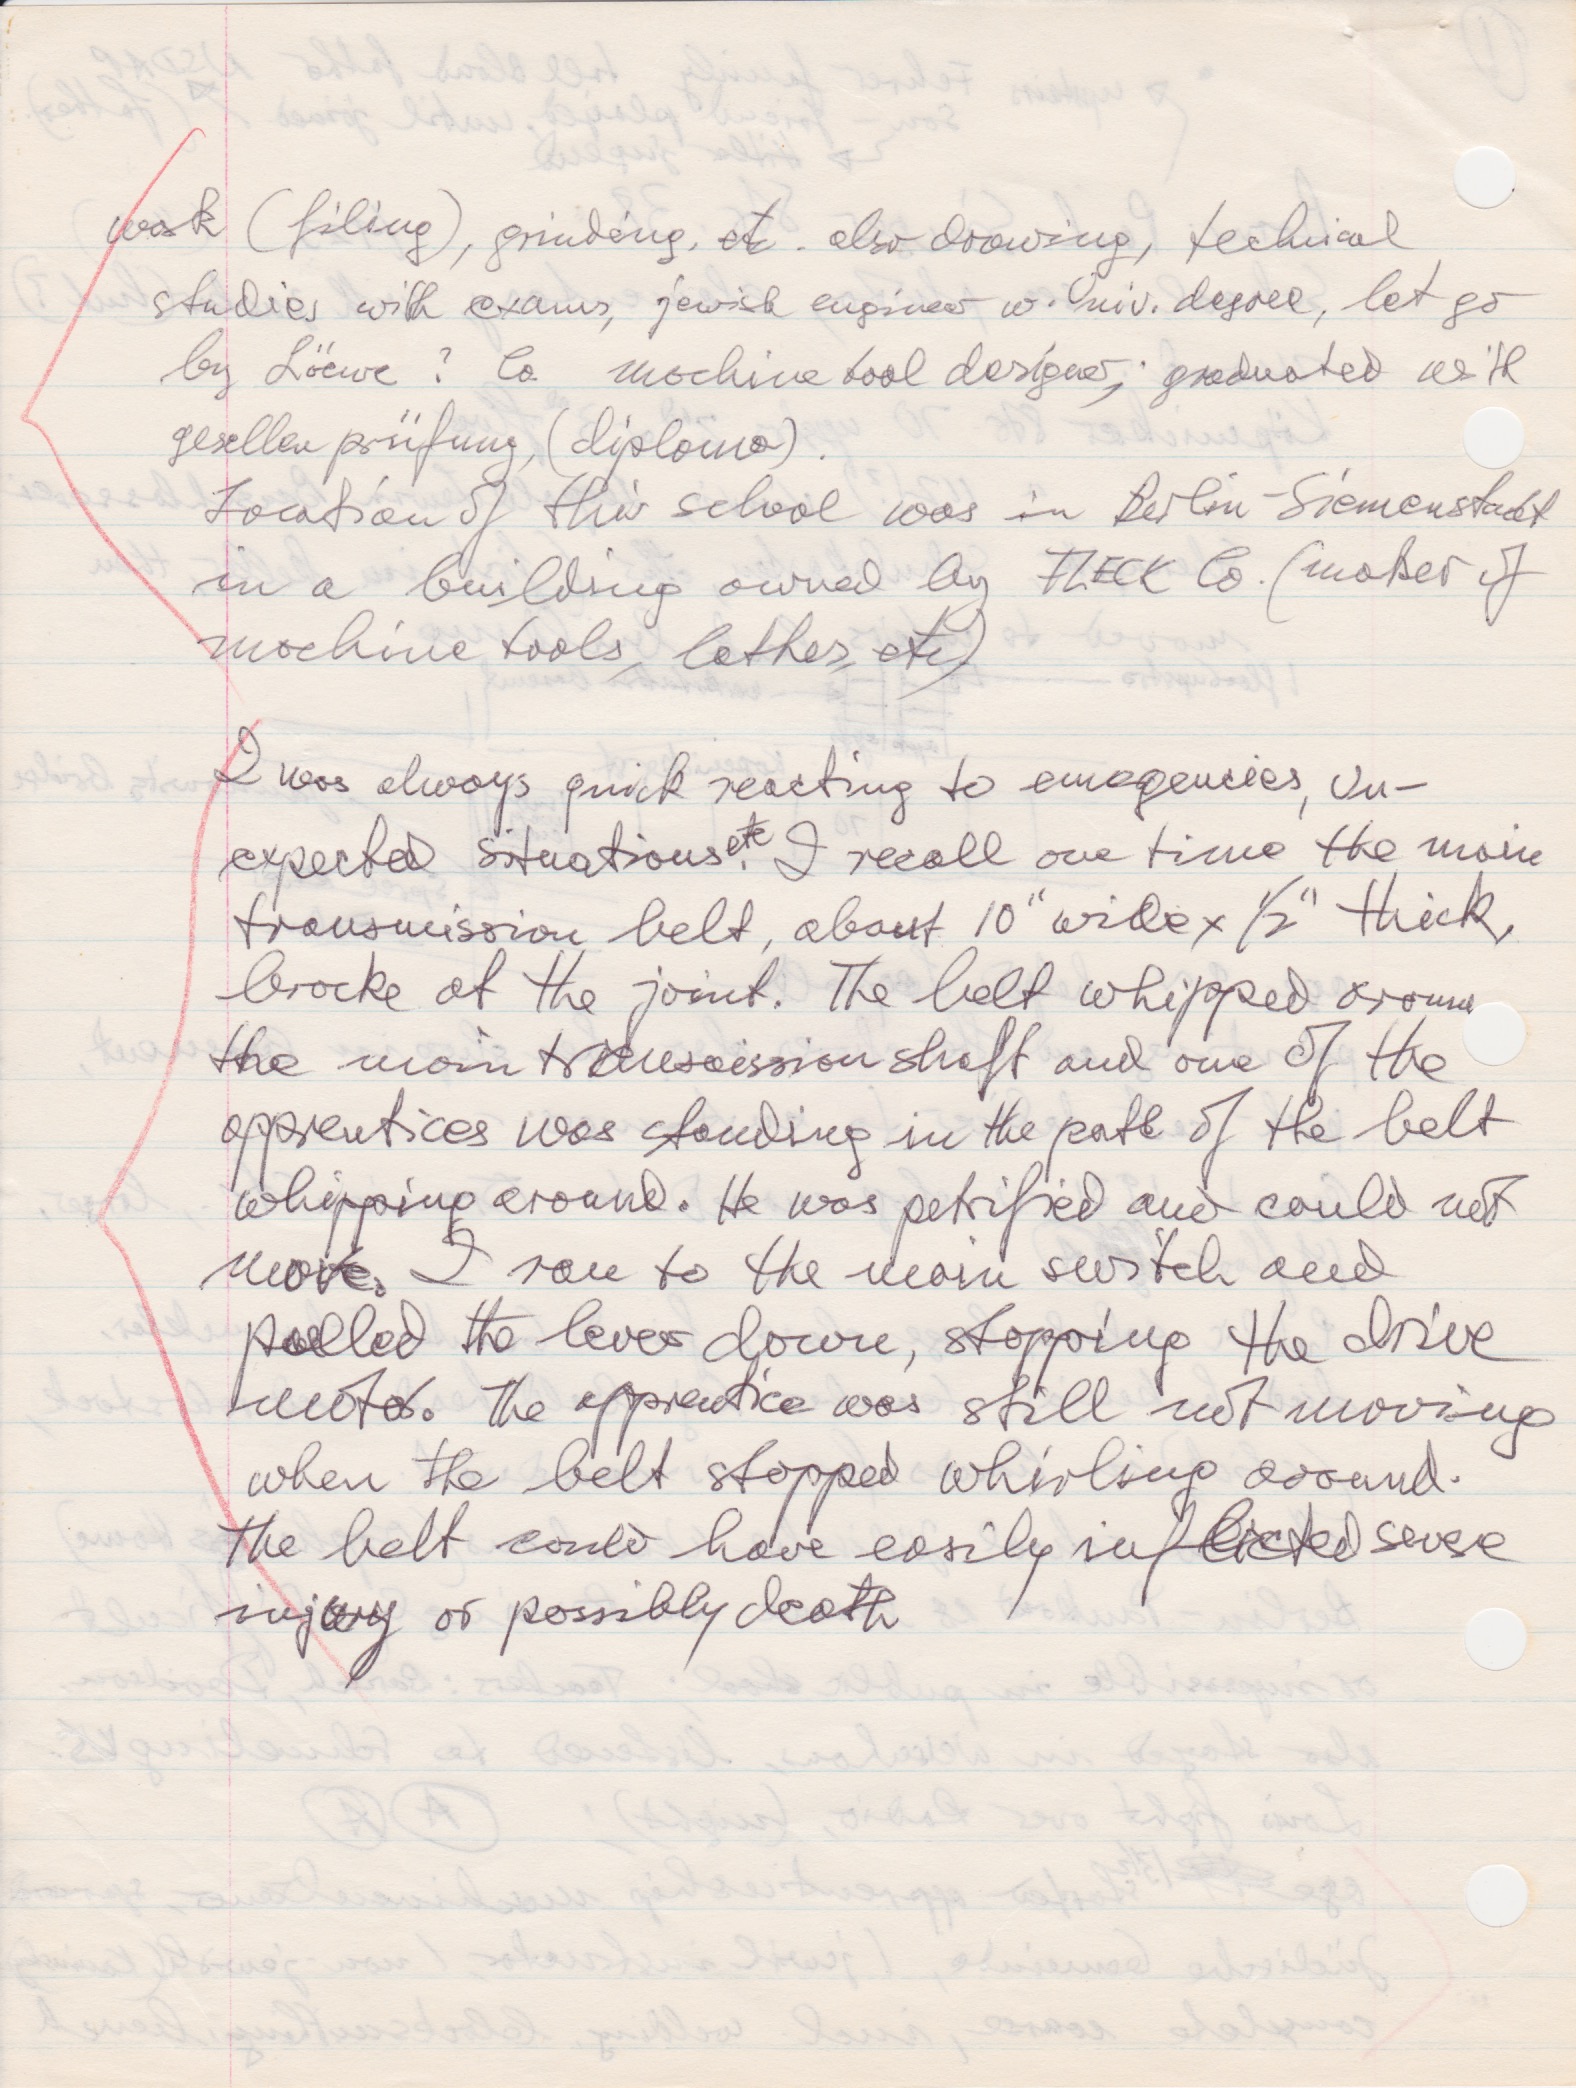 work (filing), grinding, etc. also drawing, technical
studies with exams, jewish engineer w. Univ. degree, let go
by Löewe ? Co. machine tool designer; graduated with
gesellen prüfung, (diploma).
Location of this school was in Berlin-Siemenstadt
in a building owned by FLECK Co. (maker of
machine tools, lathes, etc)
I was always quick reacting to emergencies, un-
expected situations etc. I recall one time the main
transmission belt, about 10" wide x 1/2" thick,
brocke at the joint. The belt whipped aroun
the main transmission shaft and one of the
apprentices was standing in the path of the belt
whipping around. He was petrified and could not
move. I ran to the main switch and
pulled the lever down, stopping the drive
motor. The apprentice was still not moving
when the belt stopped whirling around.
The belt could have easily inflicted severe
injury or possibly death